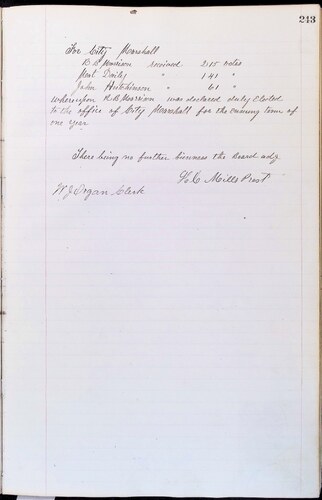 243
For City Marshall
R C Harrison received 215 votes
Paul Daily " 141 "
John Hutchinson " 61 "
whereupon R C Harrison was declared duly Elected
to the office of City Marshall for the ensuing term of
one year
There being no further business the Board adj
H C Mills Prest
W. J. Organ Clerk